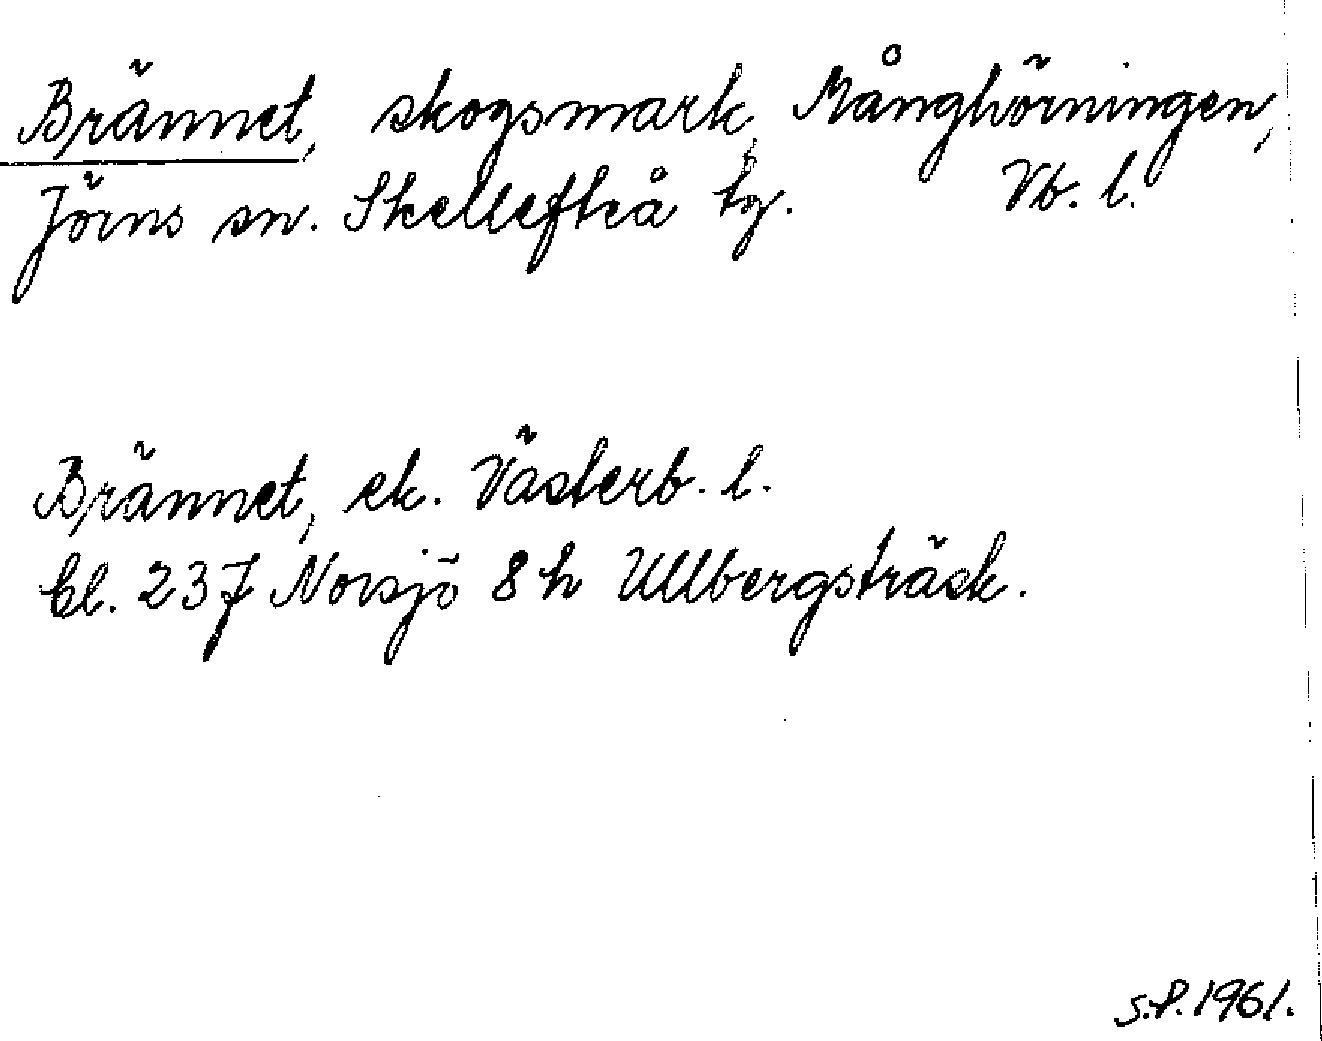 Brännet, skogsmark, Månghörningen,
Jörns sn. Skellefteå tg. Vb. l.
Brännet, ek. Västerb. l.
bl. 23J Norsjö 8h Ullbergsträsk.
S.P. 1961.